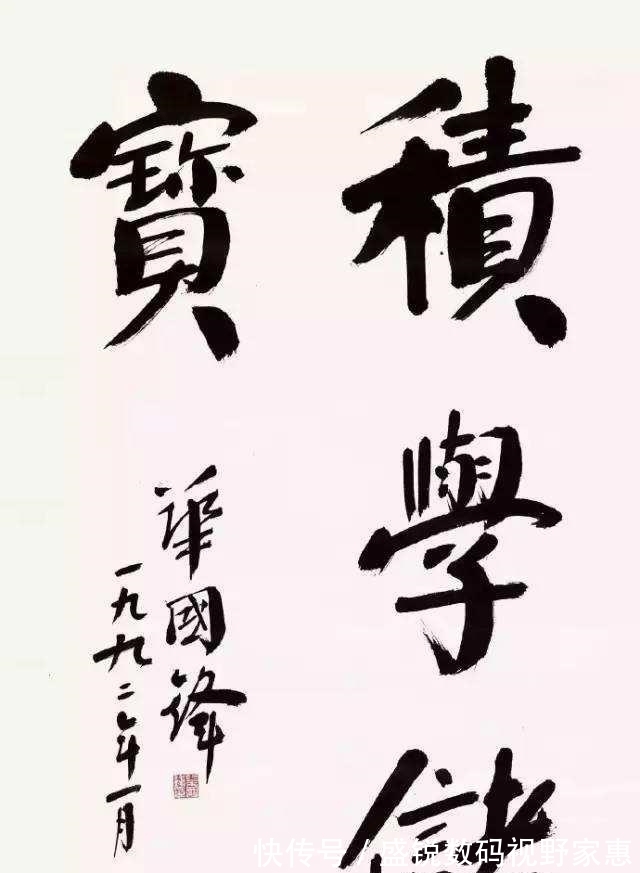 積學儲
寶
華國鋒
一九九二年一月
快传号 / 盛锐数码视野家惠